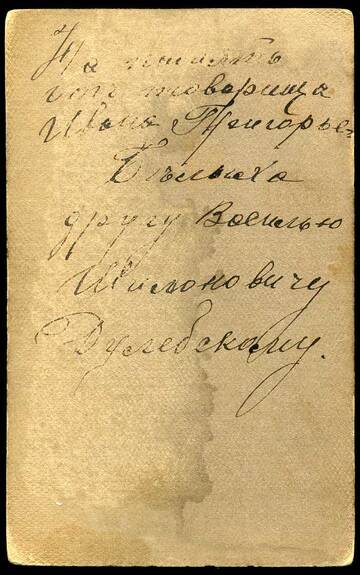 На память
отъ товарища
Ивана Григорье-
Бѣлыха
другу Василью
Филоновичу
Дулебскому.